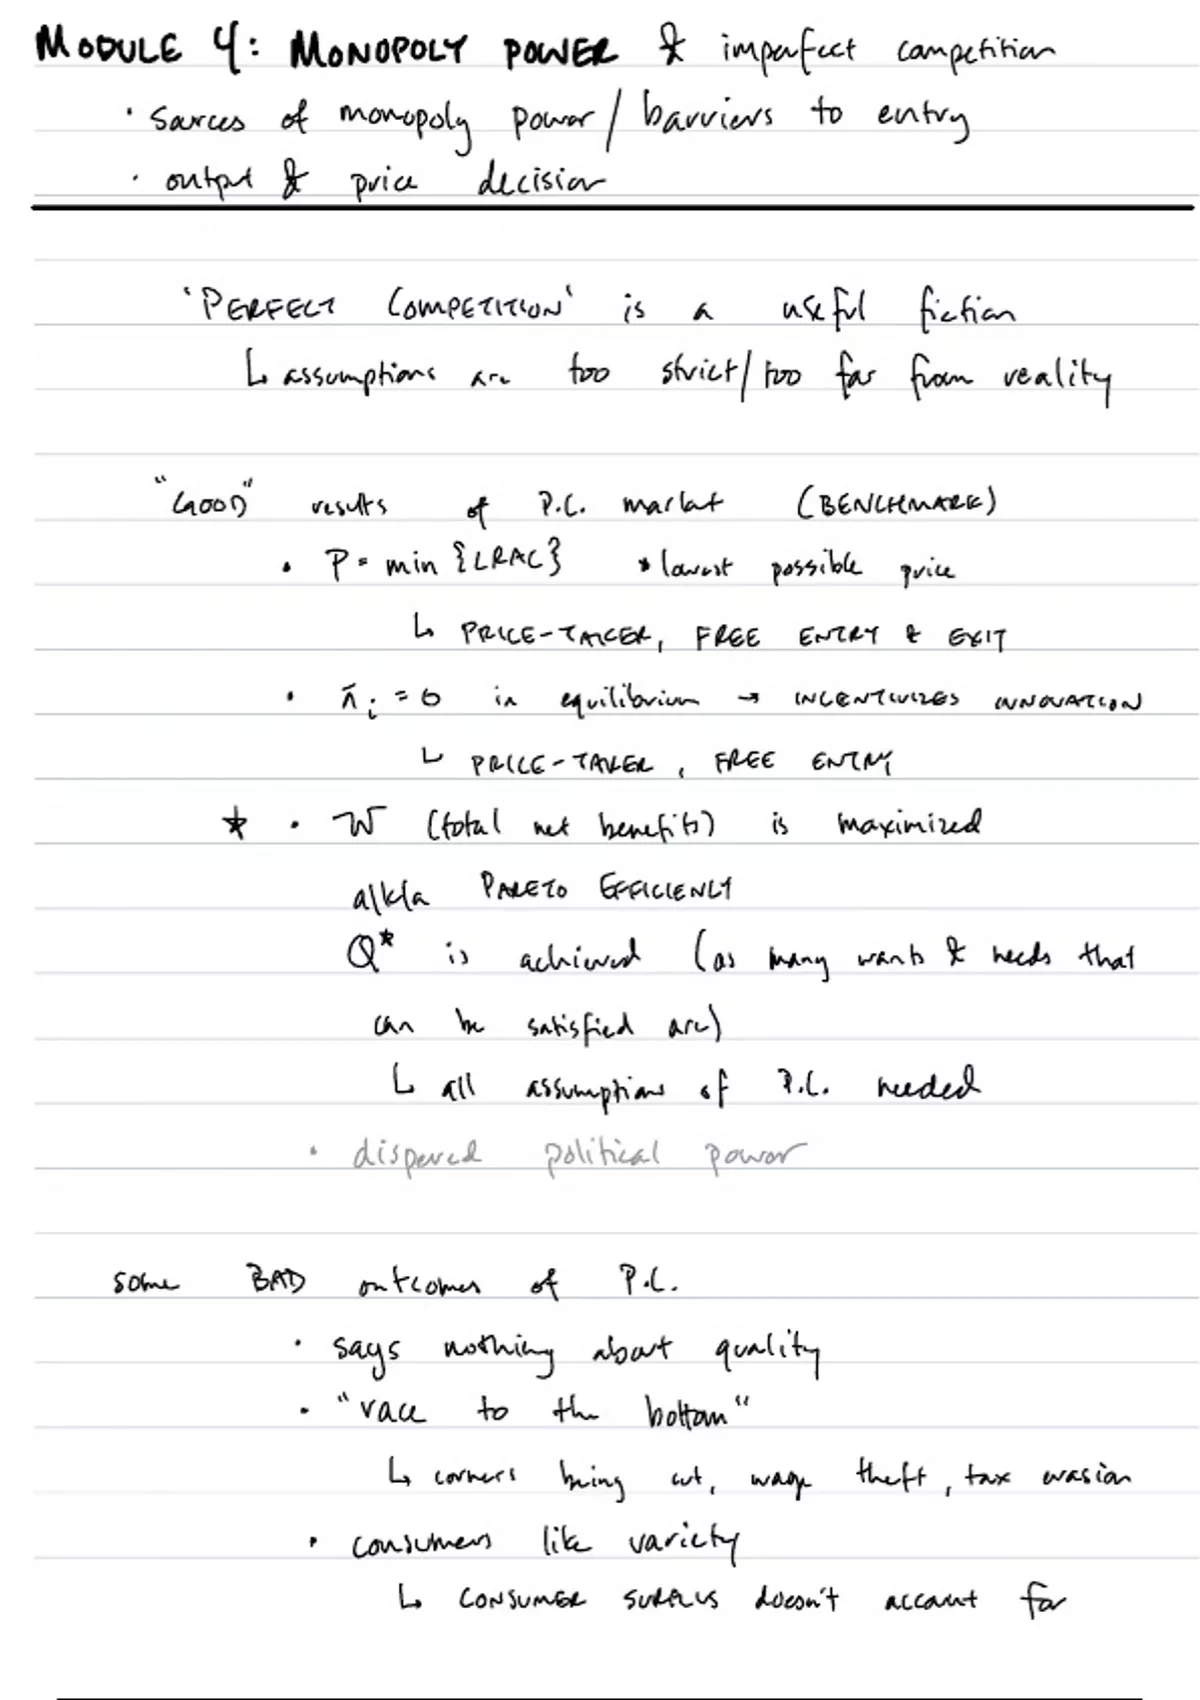 MODULE 4: MONOPOLY POWER & imperfect competition
· sources of monopoly power / barriers to entry
· output & price decision
'PERFECT COMPETITION' is a useful fiction
↳ assumptions are too strict/too far from reality
"GOOD" results of P.C. market (BENCHMARK)
• P = min {LRAC} * lowest possible price
↳ PRICE-TAKER, FREE ENTRY & EXIT
• πi = 0 in equilibrium → INCENTIVIZES INNOVATION
↳ PRICE-TAKER, FREE ENTRY
★ • W (total net benefits) is maximized
a/k/a PARETO EFFICIENCY
Q* is achieved (as many wants & needs that
can be satisfied are)
↳ all assumptions of P.C. needed
• dispered political power
some BAD outcomes of P.C.
• says nothing about quality
• "race to the bottom"
↳ corners being cut, wage theft, tax evasion
• consumers like variety
↳ CONSUMER SURPLUS doesn't account for